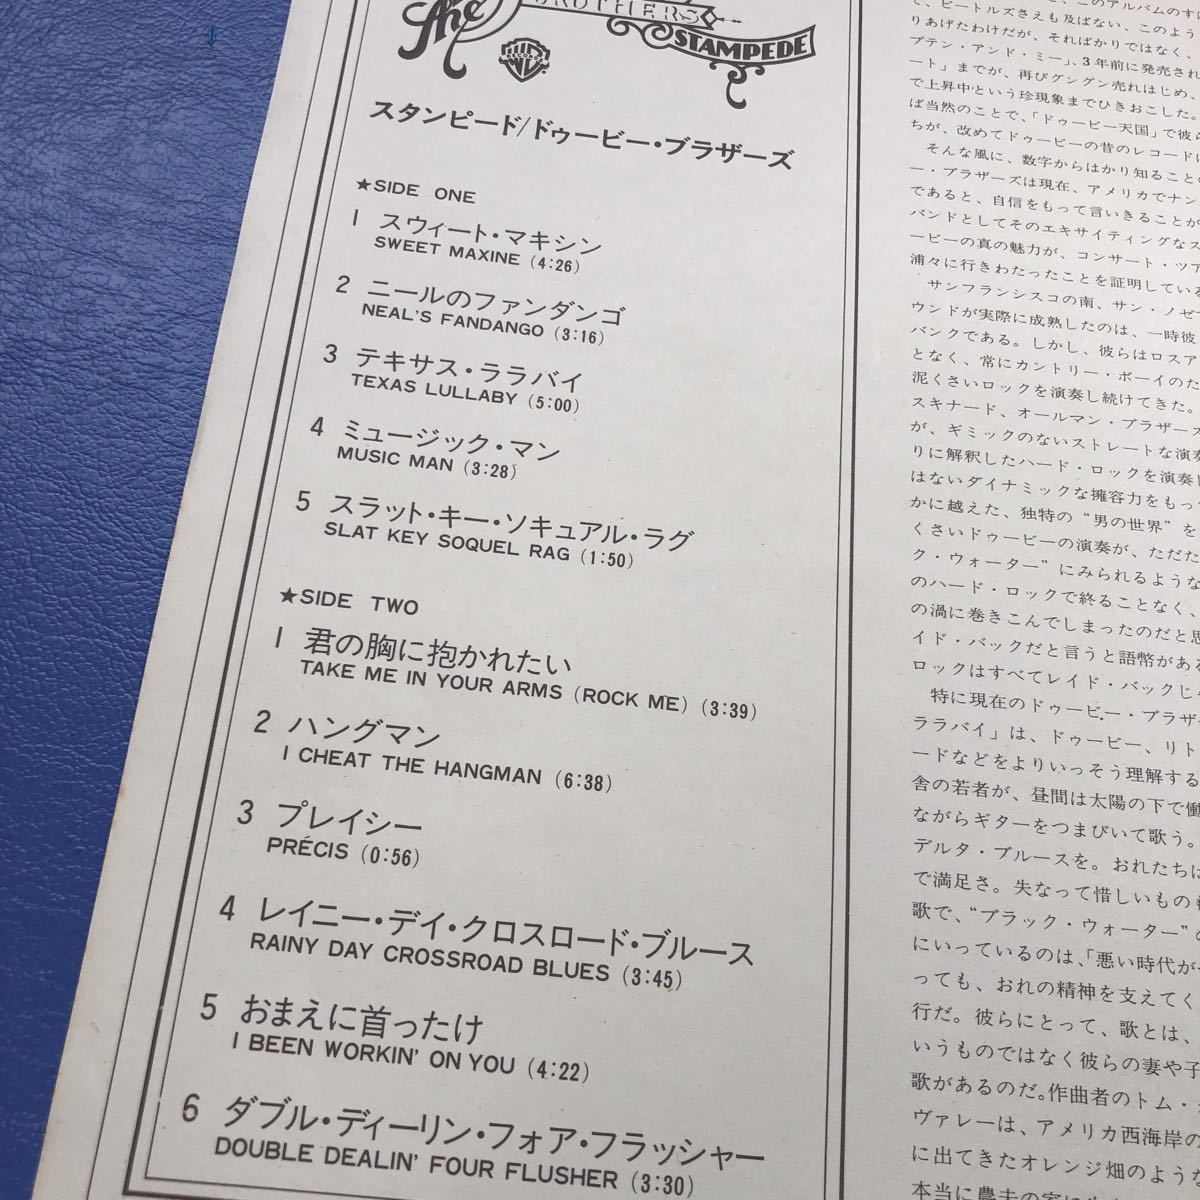 The
BROTHERS
STAMPEDE
スタンピード/ドゥービー・ブラザーズ
★SIDE ONE
1 スウィート・マキシン
SWEET MAXINE (4:26)
2 ニールのファンダンゴ
NEAL'S FANDANGO (3:16)
3 テキサス・ララバイ
TEXAS LULLABY (5:00)
4 ミュージック・マン
MUSIC MAN (3:28)
5 スラット・キー・ソキュアル・ラグ
SLAT KEY SOQUEL RAG (1:50)
★SIDE TWO
1 君の胸に抱かれたい
TAKE ME IN YOUR ARMS (ROCK ME) (3:39)
2 ハングマン
I CHEAT THE HANGMAN (6:38)
3 プレイシー
PRÉCIS (0:56)
4 レイニー・デイ・クロスロード・ブルース
RAINY DAY CROSSROAD BLUES (3:45)
5 おまえに首ったけ
I BEEN WORKIN' ON YOU (4:22)
6 ダブル・ディーリン・フォア・フラッシャー
DOUBLE DEALIN' FOUR FLUSHER (3:30)
て、ビートルズさえも及ばない、このよう
りあげたわけだが、そればかりではなく、
プテン・アンド・ミー」、3年前に発売され
ート」までが、再びグングン売れはじめ、
で上昇中という珍現象までひきおこした。
ば当然のことで、「ドゥービー天国」で彼ら
ちが、改めてドゥービーの昔のレコードに
そんな風に、数字からはかり知ることの
ー・ブラザーズは現在、アメリカでナン
であると、自信をもって言いきることが
バンドとしてそのエキサイティングなス
ービーの真の魅力が、コンサート・ツア
浦々に行きわたったことを証明している
サンフランシスコの南、サン・ノゼ
ウンドが実際に成熟したのは、一時彼
バンクである。しかし、彼らはロスア
となく、常にカントリー・ボーイのた
泥くさいロックを演奏し続けてきた。
スキナード、オールマン・ブラザーズ
が、ギミックのないストレートな演奏
りに解釈したハード・ロックを演奏し
はないダイナミックな擁容力をもっ
かに越えた、独特の“男の世界”を
くさいドゥービーの演奏が、ただた
ク・ウォーター”にみられるような
のハード・ロックで終ることなく、
の渦に巻きこんでしまったのだと思
イド・バックだと言うと語幣がある
ロックはすべてレイド・バックじ
特に現在のドゥービー・ブラザ
ララバイ」は、ドゥービー、リト
ードなどをよりいっそう理解する
舎の若者が、昼間は太陽の下で働
ながらギターをつまびいて歌う。
デルタ・ブルースを。おれたちは
で満足さ。失なって惜しいものも
歌で、“ブラック・ウォーター”の
にいっているのは、「悪い時代が
っても、おれの精神を支えてく
行だ。彼らにとって、歌とは、
いうものではなく彼らの妻や子
歌があるのだ。作曲者のトム・
ヴァレーは、アメリカ西海岸の
に出てきたオレンジ畑のような
本当に農夫の家に